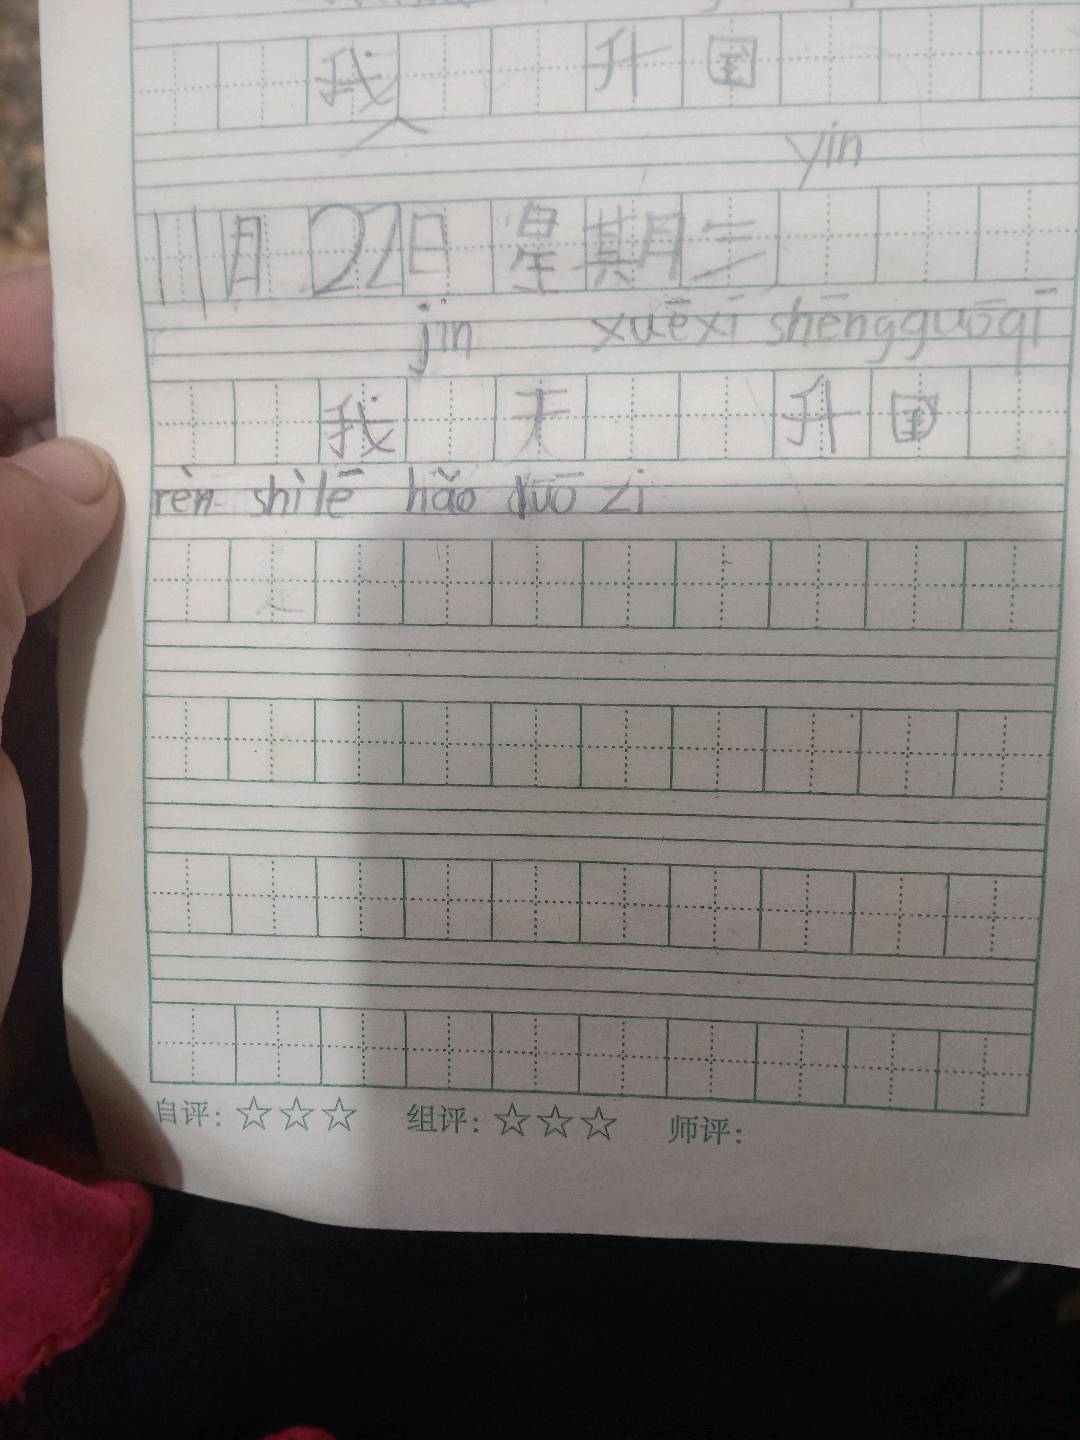 我 升 国
yin
11月22日 星期三
jin xuēxī shēngguōqī
我 天 升 国
rèn shìlē hǎo duō zi
自评：☆☆☆ 组评：☆☆☆ 师评：